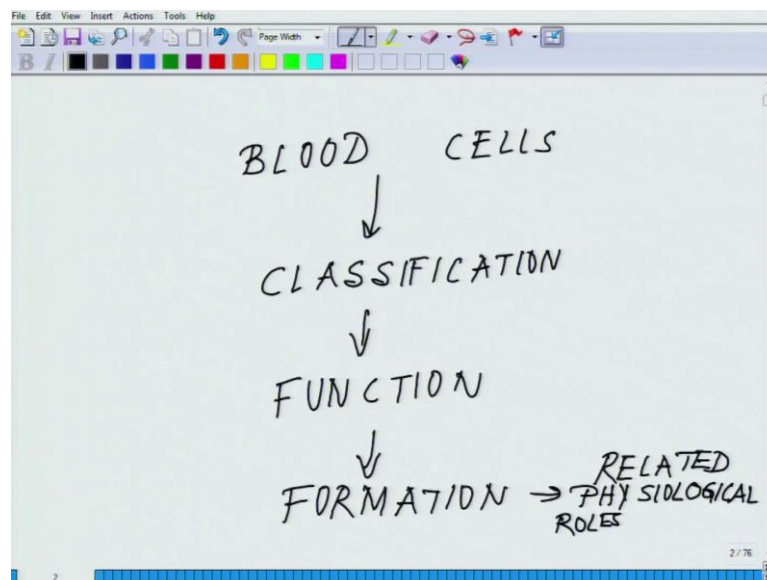 File Edit View Insert Actions Tools Help
Page Width
B I
BLOOD CELLS
CLASSIFICATION
FUNCTION
FORMATION → RELATED
PHYSIOLOGICAL
ROLES
2 / 76
2